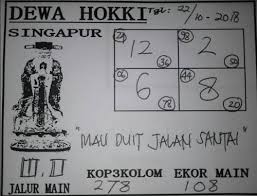 DEWA HOKKI Tgl: 22/10-2018
SINGAPUR
24 98
12 2
36 50
06 44
6 8
78 20
"MAU DUIT JALAN SANTAI"
III, II KOP3KOLOM EKOR MAIN
JALUR MAIN 278 108